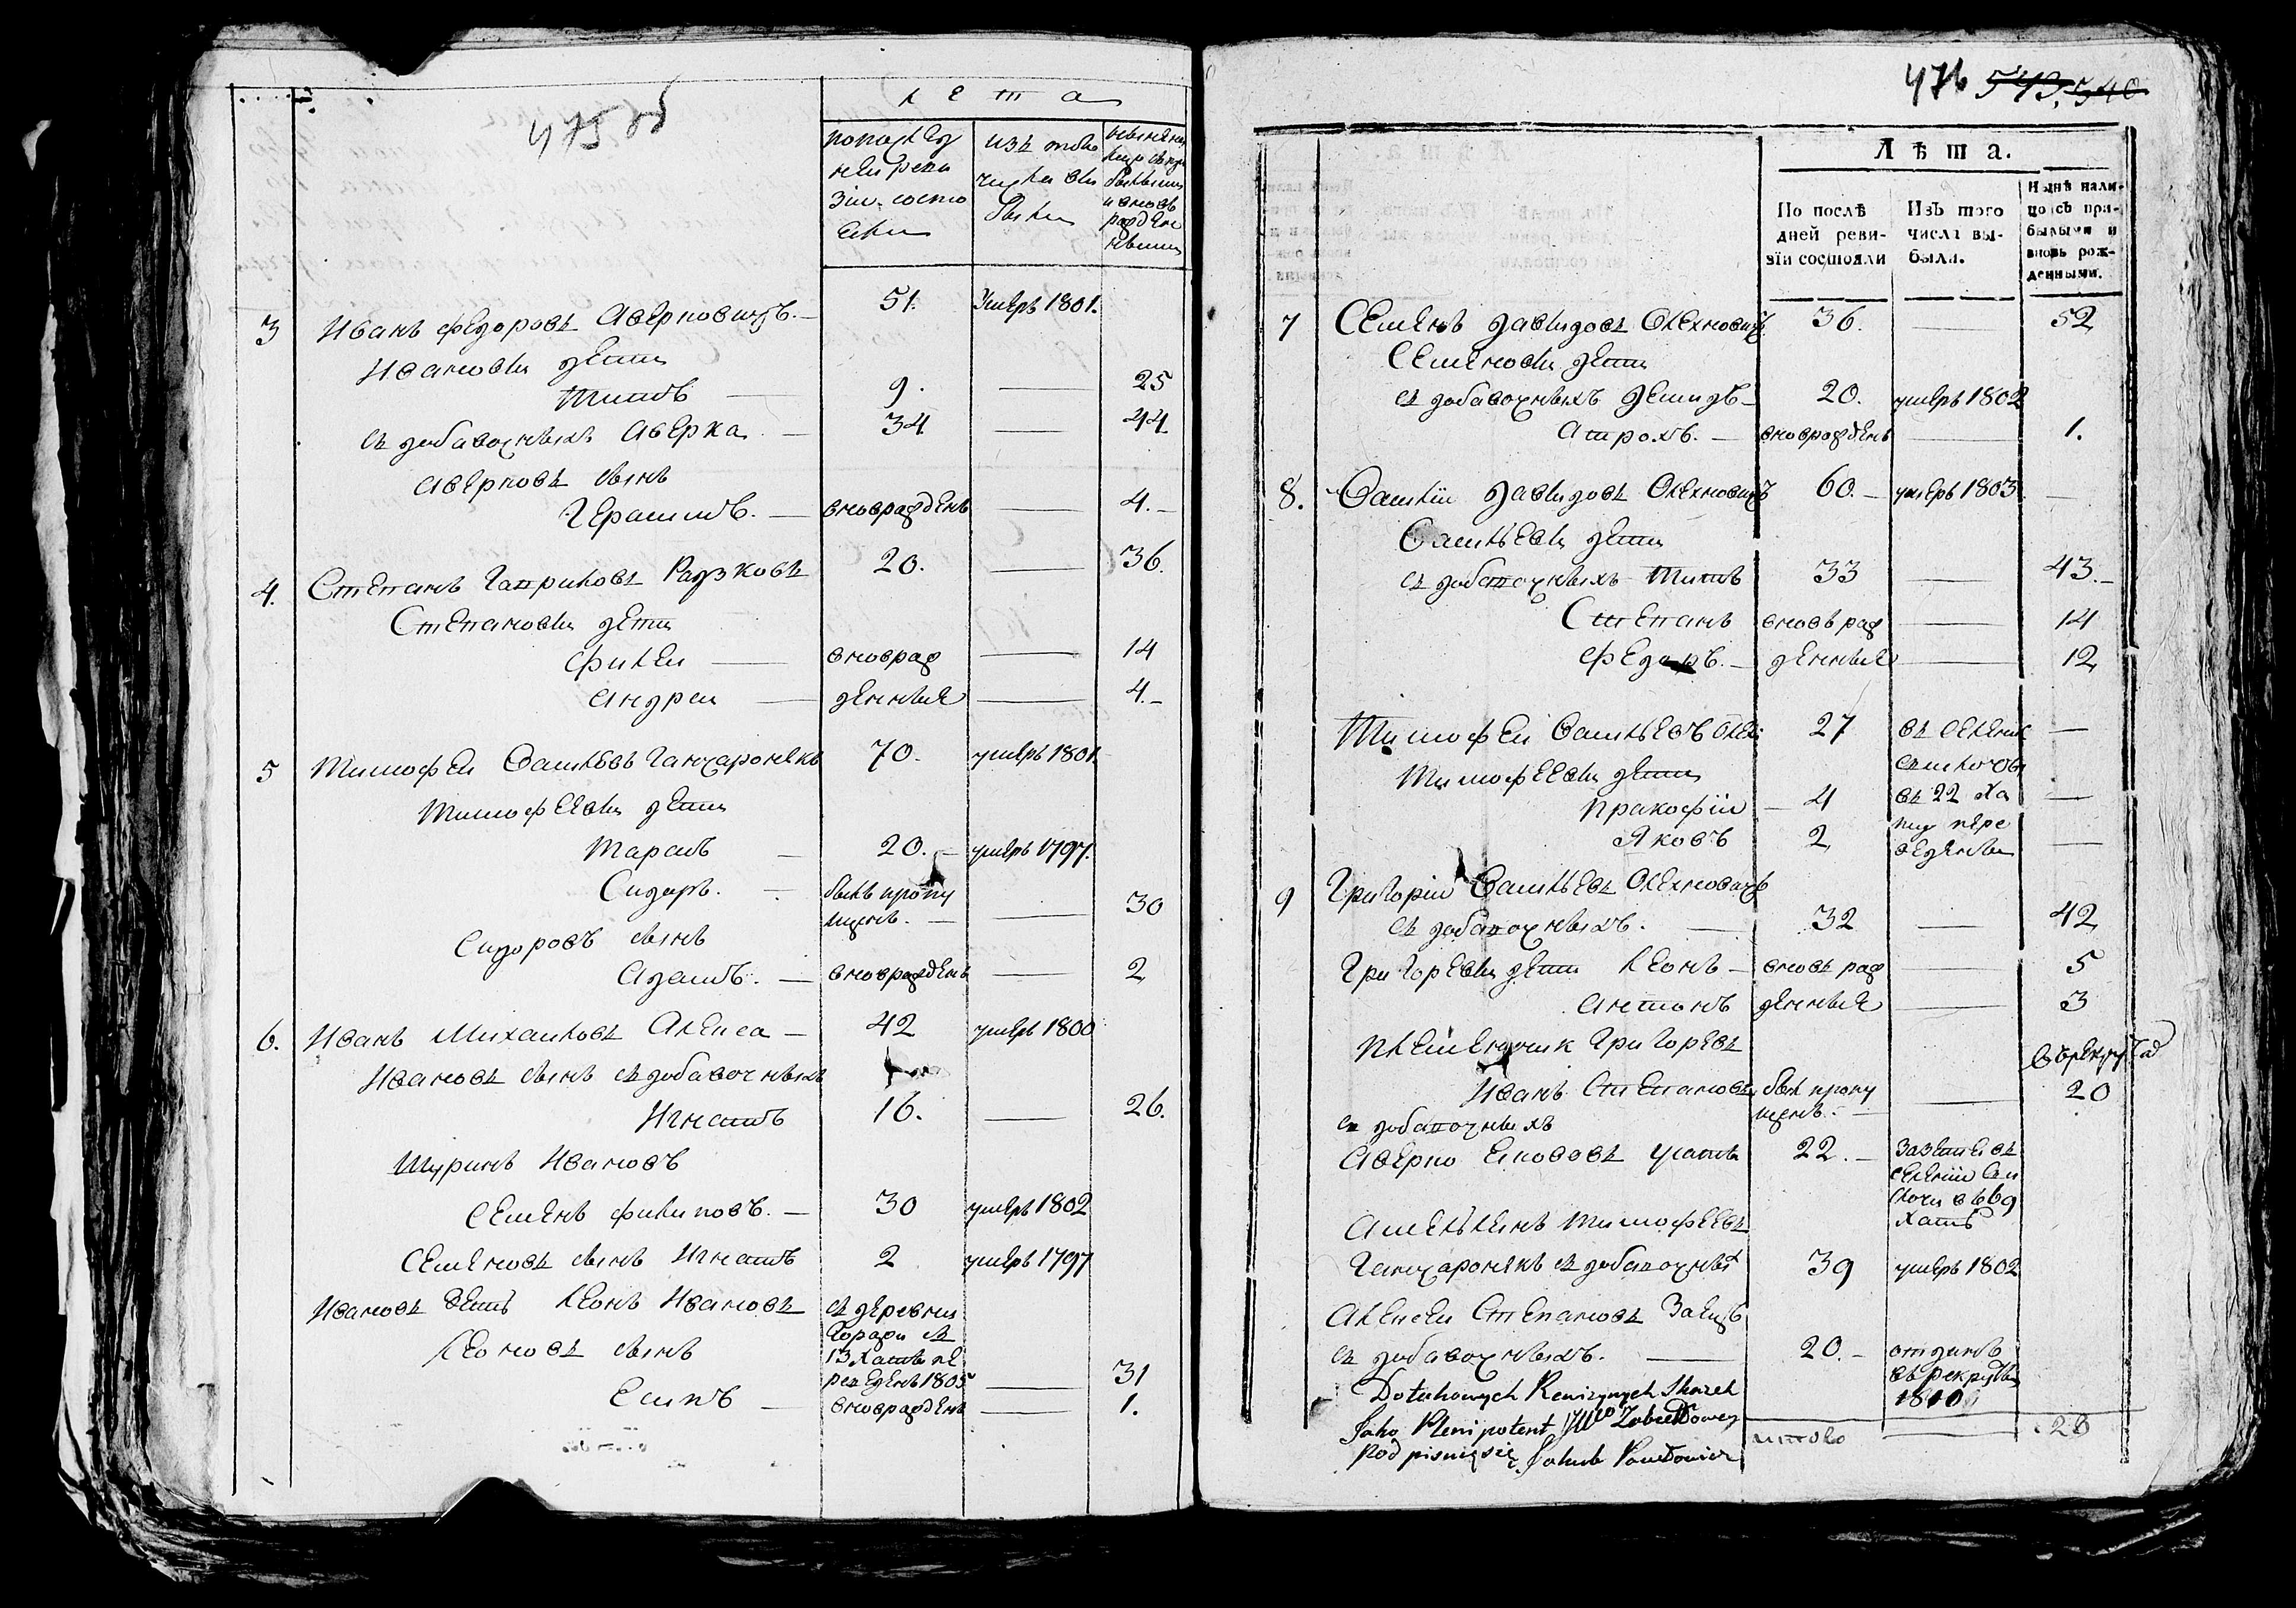 475 об
лета
по послед
ней реви
зіи состо
яли
изъ того
числа вы
были
ныне на
лицо съ при
былыми
и вновь
рожден
ными
3 Иванъ Федоровъ Аверковичъ. — 51. умеръ 1801.
Ивановы дети
Титъ — 9. — 25
съ добавочныхъ Аверка. — 34 — 44
Аверковъ сынъ
Герасимъ. — вноврожденъ — 4. —
4. Степанъ Гаврыловъ Радзковъ 20. — 36.
Степановы дети
Филеи — вноврож — 14
Андреи — денные — 4. —
5 Тимофеи Василевъ Ганчаронякъ 70. умеръ 1801.
Тимофеевы дети
Тарасъ — 20. — умеръ 1797.
Сидоръ. — былъ пропу
щенъ. — — 30
Сидоровъ сынъ
Адамъ. — вноврожденъ — 2
6. Иванъ Михаиловъ Алекса — 42 умеръ 1800
Ивановъ сынъ съ добавочныхъ
Игнатъ 16. — 26.
Шуринъ Ивановъ
Семенъ Филиповъ. — 30 умеръ 1802
Семеновъ сынъ Игнатъ 2 умеръ 1797
Ивановъ зеть Леонъ Ивановъ съ деревни
Леоновъ сынъ 13 хаты пе
реведенъ 1805 — 31
Есипъ — вноврожденъ — 1.
476 543, 540
Лѣта.
По послѣ
дней реви-
зіи состояли
Изъ того
числа вы-
были.
Нынѣ нали-
цо съ при-
былыми и
вновь рож-
денными.
7 Семенъ Давидовъ Олехновичъ 36. — 52
Семеновы дети
съ добавочныхъ Демидъ — 20. умеръ 1802
Атрохъ. — вноврожденъ — 1.
8. Василіи Давидовъ Олехновичъ 60. — умеръ 1803. —
Васильевы дети
съ добавочныхъ Титъ 33 — 43. —
Степанъ вновь рож — 14
Федоръ. — денные — 12
Тимофеи Васильевъ Олех 27 въ селение —
Тимофеевы дети
Пракофіи — 4 въ 22 ха —
Яковъ 2 ту пере
ведены —
9 Григоріи Васильевъ Олехновичъ
съ добавочныхъ. — 32 — 42
Григоревы дети Леонъ — вновь рож — 5
Антонъ денные — 3
Племенник Григоревъ
Иванъ Степановъ был пропу
щенъ. — — 20
съ добавочныхъ
Аверко 22. — въ
селении
хатѣ
Амельянъ Тимофеевъ
Ганчаронякъ съ добавочных 39 умеръ 1802
Алексеи Степановъ Заецъ
съ добавочныхъ. — 20. — отданъ
въ рекруты
1810
Jako Plenipotent
Podpisuię się Jakub
итого — 28